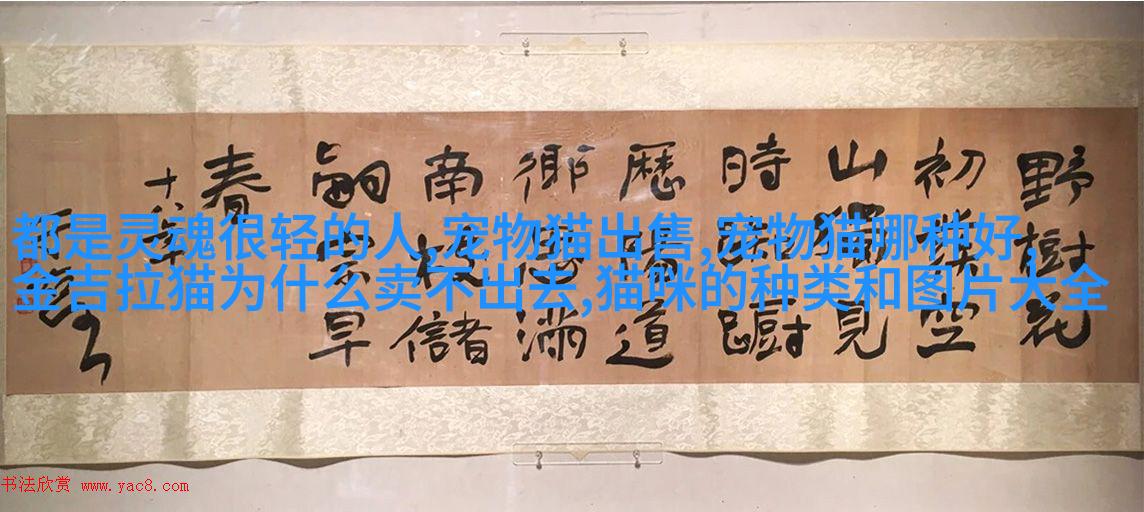 都是灵魂很轻的人,宠物猫出售,宠物猫哪种好,
金吉拉猫为什么卖不出去,猫咪的种类和图片大全
野樹花
初發空
山獨見
時踟躕
歷陽道
鄉滿
南枝儲
嗣宗早
春
十八年
书法欣赏 www.yac8.com